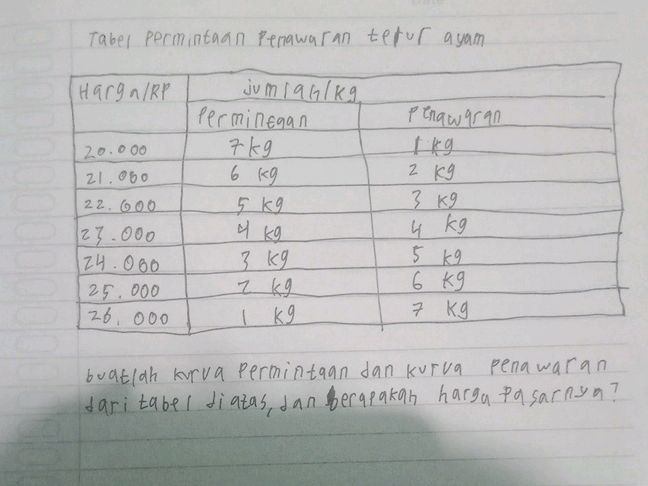 Tabel Permintaan Penawaran telur ayam
Harga/RP Jumlah/kg
Permintaan Penawaran
20.000 7 kg 1 kg
21.000 6 kg 2 kg
22.000 5 kg 3 kg
23.000 4 kg 4 kg
24.000 3 kg 5 kg
25.000 2 kg 6 kg
26.000 1 kg 7 kg
buatlah kurva Permintaan dan kurva Penawaran
dari tabel diatas, dan berapakah harga Pasarnya?